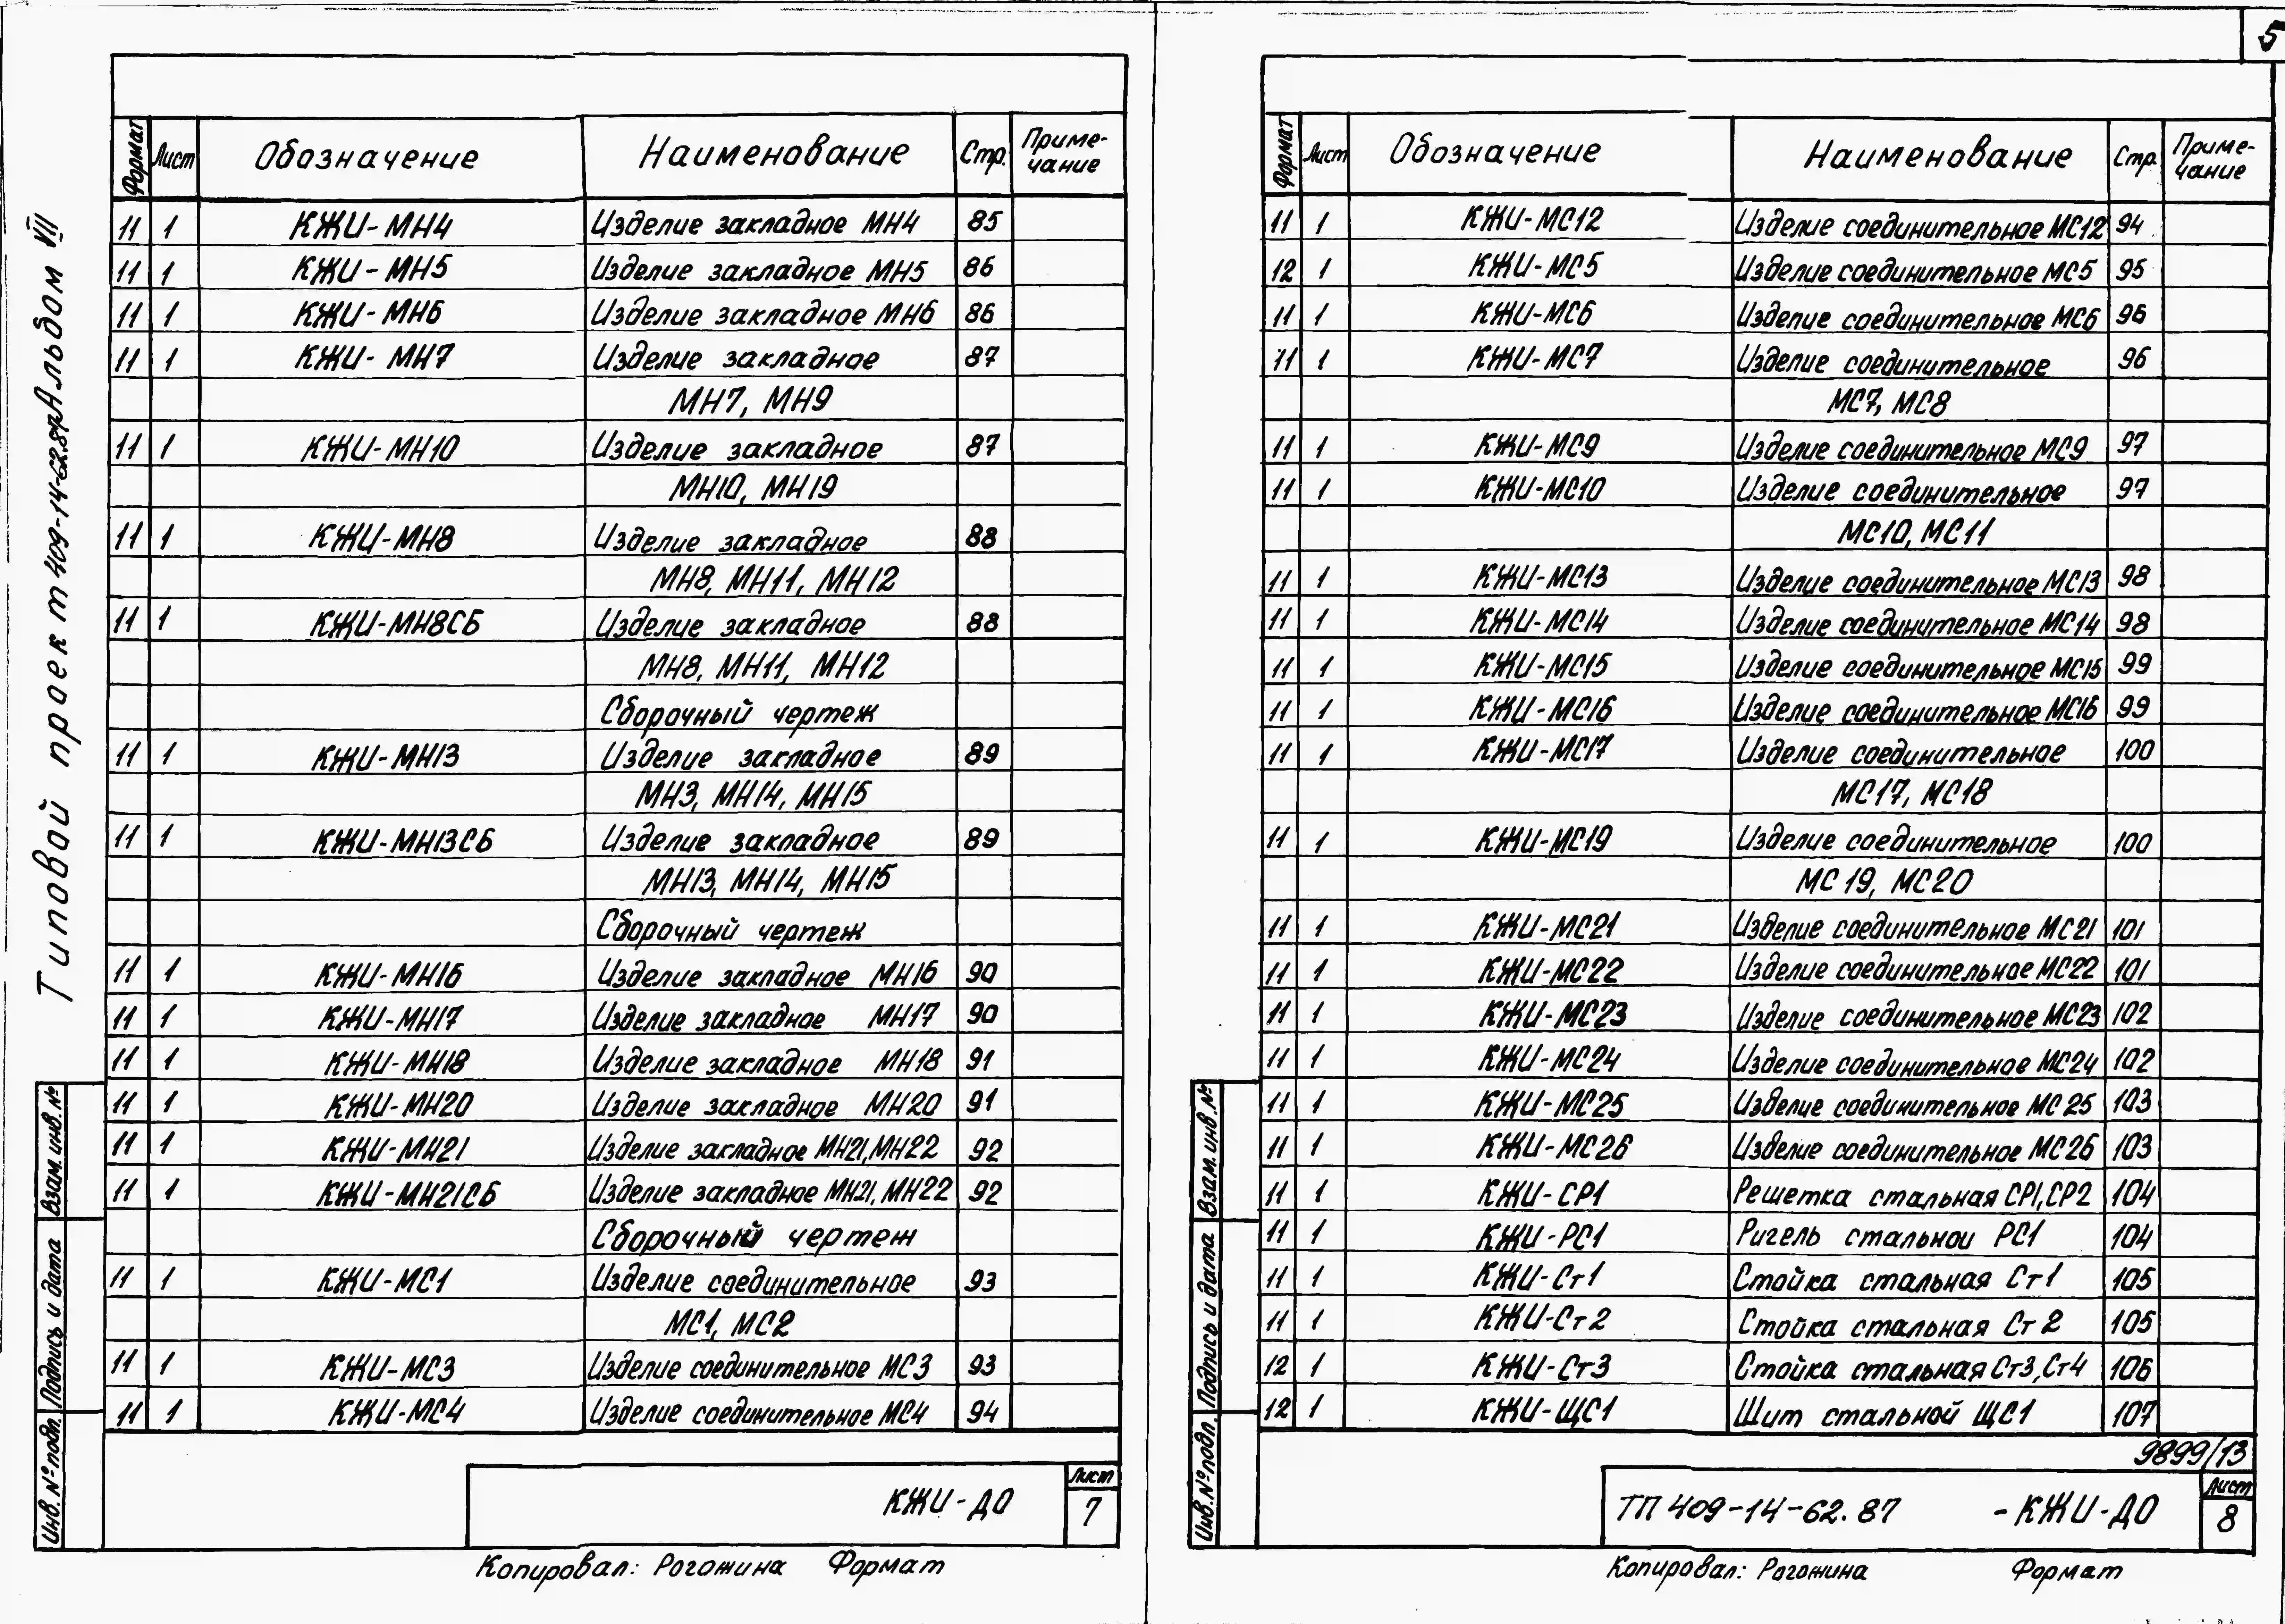 5
Типовой проект 409-14-62.87 Альбом VII
Формат Лист Обозначение Наименование Стр. Приме-
чание
11 1 КЖИ-МН4 Изделие закладное МН4 85
11 1 КЖИ-МН5 Изделие закладное МН5 86
11 1 КЖИ-МН6 Изделие закладное МН6 86
11 1 КЖИ-МН7 Изделие закладное 87
МН7, МН9
11 1 КЖИ-МН10 Изделие закладное 87
МН10, МН19
11 1 КЖИ-МН8 Изделие закладное 88
МН8, МН11, МН12
11 1 КЖИ-МН8СБ Изделие закладное 88
МН8, МН11, МН12
Сборочный чертеж
11 1 КЖИ-МН13 Изделие закладное 89
МН3, МН14, МН15
11 1 КЖИ-МН13СБ Изделие закладное 89
МН13, МН14, МН15
Сборочный чертеж
11 1 КЖИ-МН16 Изделие закладное МН16 90
11 1 КЖИ-МН17 Изделие закладное МН17 90
11 1 КЖИ-МН18 Изделие закладное МН18 91
11 1 КЖИ-МН20 Изделие закладное МН20 91
11 1 КЖИ-МН21 Изделие закладное МН21, МН22 92
11 1 КЖИ-МН21СБ Изделие закладное МН21, МН22 92
Сборочный чертеж
11 1 КЖИ-МС1 Изделие соединительное 93
МС1, МС2
11 1 КЖИ-МС3 Изделие соединительное МС3 93
11 1 КЖИ-МС4 Изделие соединительное МС4 94
Взам. инв. №
Подпись и дата
Инв. № подл.
КЖИ-ДО Лист
7
Копировал: Рогожина Формат
Формат Лист Обозначение Наименование Стр. Приме-
чание
11 1 КЖИ-МС12 Изделие соединительное МС12 94
12 1 КЖИ-МС5 Изделие соединительное МС5 95
11 1 КЖИ-МС6 Изделие соединительное МС6 96
11 1 КЖИ-МС7 Изделие соединительное 96
МС7, МС8
11 1 КЖИ-МС9 Изделие соединительное МС9 97
11 1 КЖИ-МС10 Изделие соединительное 97
МС10, МС11
11 1 КЖИ-МС13 Изделие соединительное МС13 98
11 1 КЖИ-МС14 Изделие соединительное МС14 98
11 1 КЖИ-МС15 Изделие соединительное МС15 99
11 1 КЖИ-МС16 Изделие соединительное МС16 99
11 1 КЖИ-МС17 Изделие соединительное 100
МС17, МС18
11 1 КЖИ-МС19 Изделие соединительное 100
МС19, МС20
11 1 КЖИ-МС21 Изделие соединительное МС21 101
11 1 КЖИ-МС22 Изделие соединительное МС22 101
11 1 КЖИ-МС23 Изделие соединительное МС23 102
11 1 КЖИ-МС24 Изделие соединительное МС24 102
11 1 КЖИ-МС25 Изделие соединительное МС25 103
11 1 КЖИ-МС26 Изделие соединительное МС26 103
11 1 КЖИ-СР1 Решетка стальная СР1, СР2 104
11 1 КЖИ-РС1 Ригель стальнои РС1 104
11 1 КЖИ-Ст1 Стойка стальная Ст1 105
11 1 КЖИ-Ст2 Стойка стальная Ст2 105
12 1 КЖИ-Ст3 Стойка стальная Ст3, Ст4 106
12 1 КЖИ-ЩС1 Шит стальной ЩС1 107
9899/13
Взам. инв. №
Подпись и дата
Инв. № подл.
ТП 409-14-62.87 -КЖИ-ДО Лист
8
Копировал: Рогожина Формат